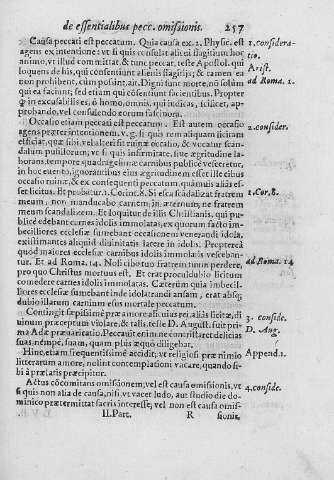 de essentialibus pecc. omissionis. 257
Causa peccati est peccatum. Quia causa ex 2. Physic. est
agens ex intentione: vt si quis consulat alicui iugulet aloc
animo, vt illud committat, & tunc peccat, teste Apostol.
loquens de his, qui consentiunt alienis flagitijs; & tamen ea
non prohibent, cum possint, ait. Digni sunt morte, nõ solùm
qui ea faciunt, sed etiam qui cõsentiunt facientibus. Propter
quod inexcusabiles, ô homo, omnis, qui iudicas, scilicet, ap-
probando, vel consulendo eorum facinora.
Occasio etiam peccati est peccatum. Est autem occasio
agens præter intentionem. v. g. si quis rem aliquam licitam
efficiat, quæ sibi, vel alteri sit ruinæ occasio, & vocatur scan-
dalum pusillorum; vt si quis infirmitate, siue ægritudine la-
borans, tempore quadragesimæ carnibus publicè vesceretur,
in hoc euentu, ignorantibus eius ægritudinem esset ille cibus
occasio ruinæ, & ex consequenti peccatum, quámuis aliàs es-
set licitus. Et probatur 1. Corint. 8. Si esca scãdalizat fratrem
meum, non manducabo carnem, in æternum, ne fratrem
meum scandalizem. Et loquitur de illis Christianis, qui pu-
blicè edebant carnes idolis immolatas, ex quorum facto im-
becilliores ecclesiæ sumebant occasionem venerandi idola,
existimantes aliquid diuinitatis latere in idolis. Propterea
quòd maiores ecclesiæ carnibus idolis immolatis vesceban-
tur. Et ad Roma. 14. Noli cibo tuo fratrem tuum perdere,
pro quo Christus mortuus est. Et erat proculdubio licitum
comedere carnes idolis immolatas. Cæterùm quia imbecil-
liores ecclesiæ sumebant inde idolatrandi ansam, erat absq;
dubio illarum carnium esus mortale peccatum.
Contingit sæpissimè præ amore alicuius rei, aliàs licitæ, di-
uinum præceptum violare, & talis, teste D. August. fuit pri-
ma Adæ præuaricatio. Peccauit enim ne contristaret delicias
suas, nempe, suam, quam plus æquo diligebat.
Hinc, etiam frequentissimè accidit, vt religiosi præ nimio
litterarum amore, nolint contemplationi vacare, quando si-
bi à prælatis præcipitur.
Actus cõcomitans omissionem, vel est causa omissionis, vt
si quis non alia de causa, nisi, vt vacet ludo, aut studio die do-
minico prætermittat sacris interesse, vel non est causa omis-
II. Part. R sionis,
1. considera-
tio.
Arist.
ad Roma. 1.
2. consider.
1. Cor. 8.
ad Roma. 14
3. conside.
D. Aug.
Append. 1.
4. conside.